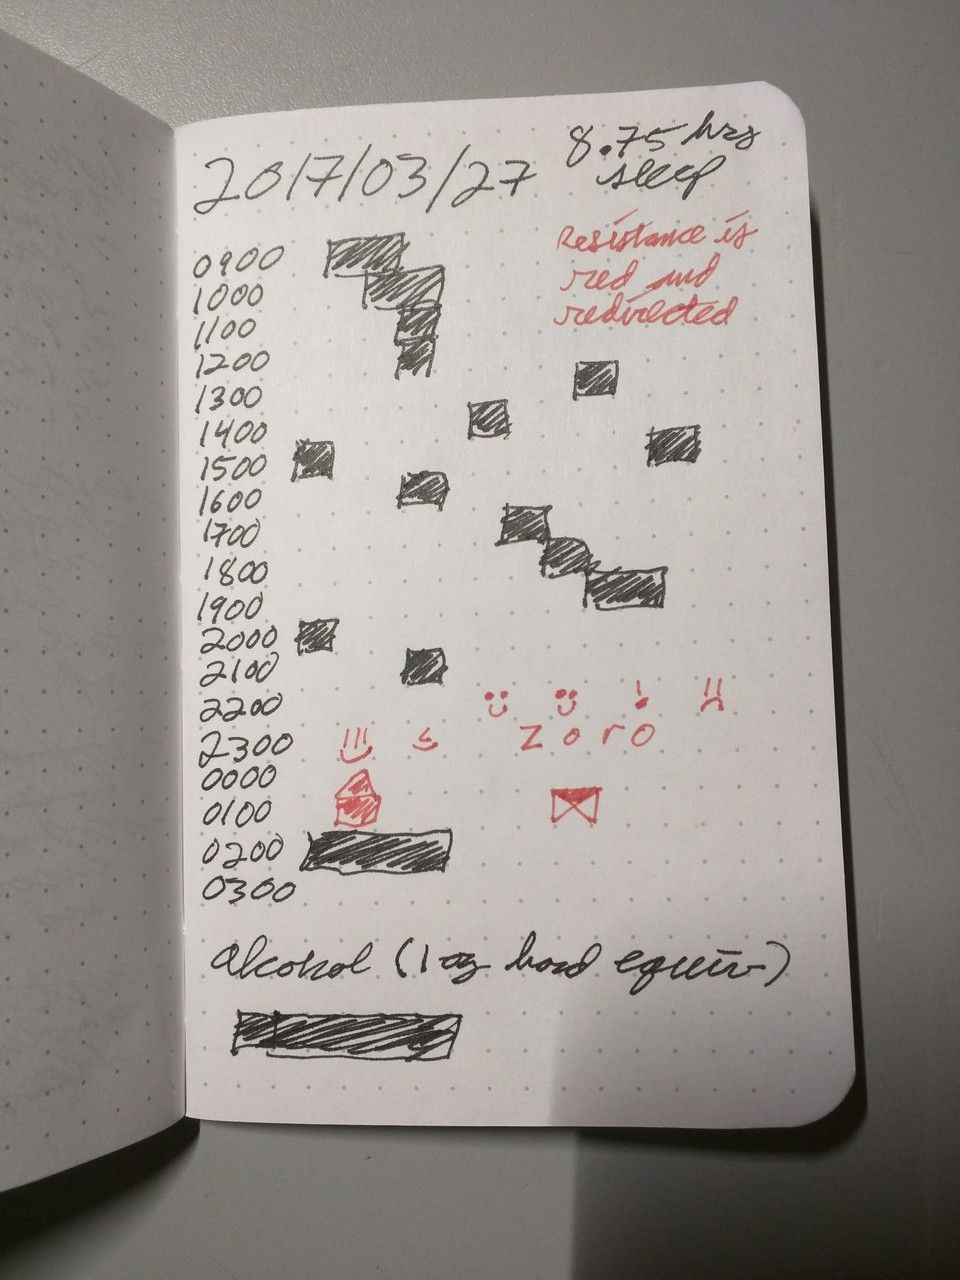 2017/03/27
8.75 hrs
sleep
Resistance is
red and
redirected
0900
1000
1100
1200
1300
1400
1500
1600
1700
1800
1900
2000
2100
2200
2300
zoro
0000
0100
0200
0300
alcohol (1 oz hard equiv)